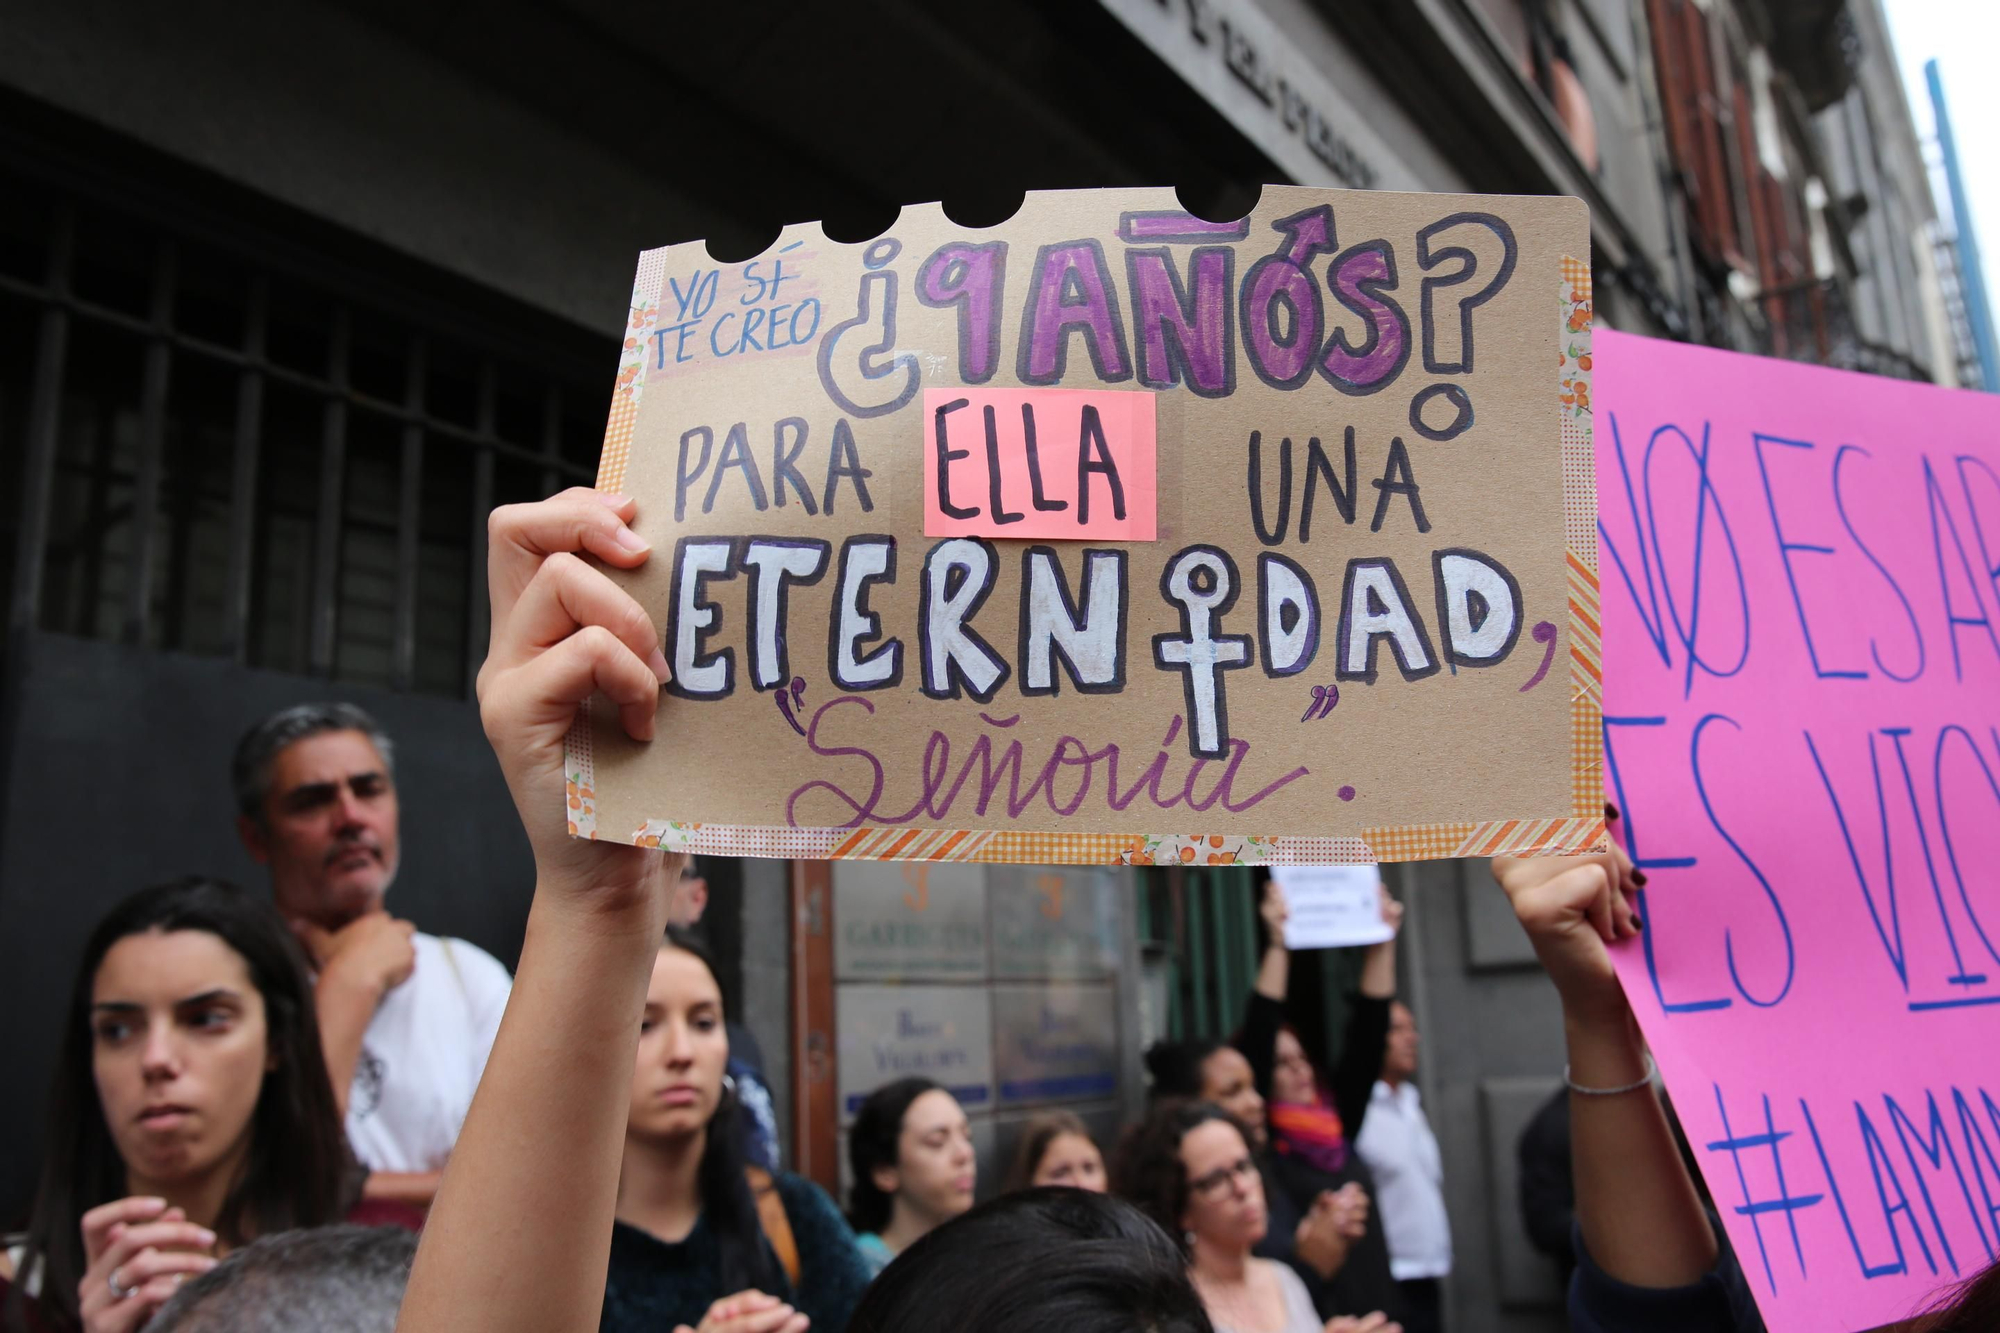 YO SÍ
TE CREO
¿9 AÑOS?
PARA ELLA UNA
ETERNIDAD,
"Señoría".
NO ES AB
ES VIO
#LAMA